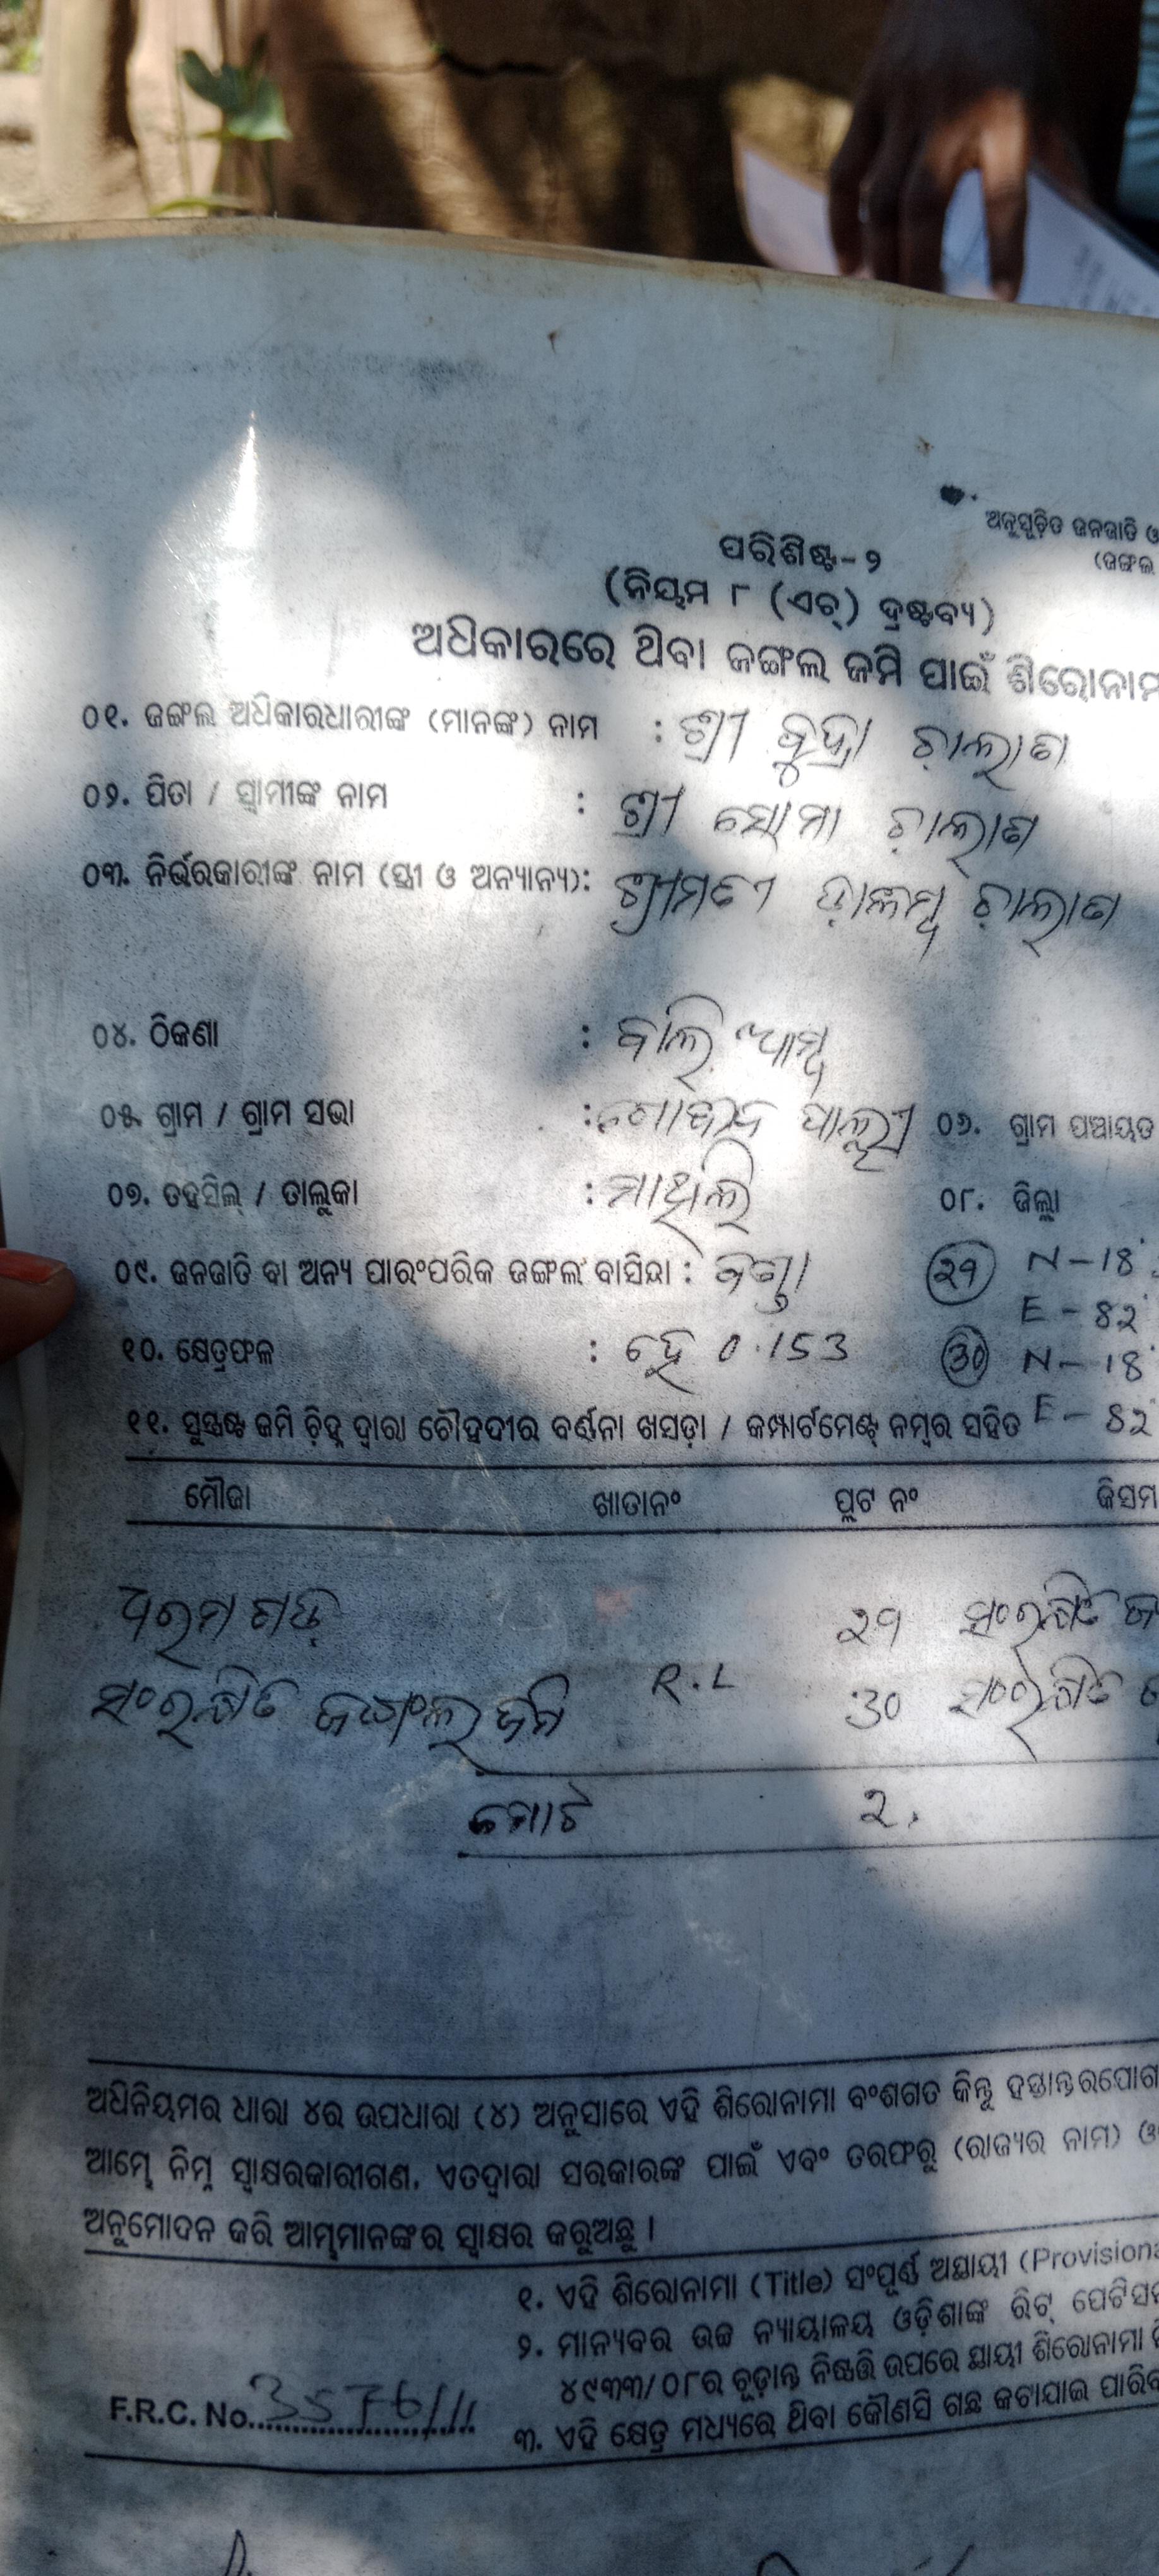 ଅନୁସୂଚିତ ଜନଜାତି ଓ
(ଜଙ୍ଗଲ
ପରିଶିଷ୍ଟ-୨
(ନିୟମ ୮ (ଏଚ୍) ଦ୍ରଷ୍ଟବ୍ୟ)
ଅଧିକାରରେ ଥିବା ଜଙ୍ଗଲ ଜମି ପାଇଁ ଶିରୋନାମ
୦୧. ଜଙ୍ଗଲ ଅଧିକାରଧାରୀଙ୍କ (ମାନଙ୍କ) ନାମ : ଶ୍ରୀ ବୁଦ୍ରା ଚାଲାଣ
୦୨. ପିତା / ସ୍ୱାମୀଙ୍କ ନାମ : ଶ୍ରୀ ସୋମା ଚାଲାଣ
୦୩. ନିର୍ଭରକାରୀଙ୍କ ନାମ (ସ୍ତ୍ରୀ ଓ ଅନ୍ୟାନ୍ୟ): ଶ୍ରୀମତୀ ଡାଳମ୍ବ ଚାଲାଣ
୦୪. ଠିକଣା :
୦୫. ଗ୍ରାମ / ଗ୍ରାମ ସଭା : ପାଲ୍ଲୀ ୦୬. ଗ୍ରାମ ପଞ୍ଚାୟତ
୦୭. ତହସିଲ୍ / ତାଲୁକା : ମାଥିଲି ୦୮. ଜିଲ୍ଲା
୦୯. ଜନଜାତି ବା ଅନ୍ୟ ପାରଂପରିକ ଜଙ୍ଗଲ ବାସିନ୍ଦା : ବଣ୍ଡା ୨୩ N-18°
E-82°
୧୦. କ୍ଷେତ୍ରଫଳ : ହେ 0.153 30 N-18°
୧୧. ସୁସ୍ପଷ୍ଟ ଜମି ଚିହ୍ନ ଦ୍ୱାରା ଚୌହଦୀର ବର୍ଣ୍ଣନା ଖସଡ଼ା / କମ୍ପାର୍ଟମେଣ୍ଟ୍ ନମ୍ବର ସହିତ E-82
ମୌଜା ଖାତାନଂ ପ୍ଲଟ ନଂ କିସମ
ଧରମଗଡ଼ ସଂରକ୍ଷିତ ଜ
ସଂରକ୍ଷିତ ଜଙ୍ଗଲ ଜମି R.L 30 ସଂରକ୍ଷିତ
ମୋଟ ୨.
ଅଧିନିୟମର ଧାରା ୪ର ଉପଧାରା (୪) ଅନୁସାରେ ଏହି ଶିରୋନାମା ବଂଶଗତ କିନ୍ତୁ ହସ୍ତାନ୍ତରଯୋଗ
ଆମ୍ଭେ ନିମ୍ନ ସ୍ୱାକ୍ଷରକାରୀଗଣ, ଏତଦ୍ଦ୍ୱାରା ସରକାରଙ୍କ ପାଇଁ ଏବଂ ତରଫରୁ (ରାଜ୍ୟର ନାମ) ଓ
ଅନୁମୋଦନ କରି ଆମ୍ଭମାନଙ୍କର ସ୍ୱାକ୍ଷର କରୁଅଛୁ ।
୧. ଏହି ଶିରୋନାମା (Title) ସଂପୂର୍ଣ୍ଣ ଅସ୍ଥାୟୀ (Provisiona
୨. ମାନ୍ୟବର ଉଚ୍ଚ ନ୍ୟାୟାଳୟ ଓଡ଼ିଶାଙ୍କ ରିଟ୍ ପେଟିସନ
୪୯୩୩/୦୮ର ଚୂଡ଼ାନ୍ତ ନିଷ୍ପତ୍ତି ଉପରେ ସ୍ଥାୟୀ ଶିରୋନାମା
୩. ଏହି କ୍ଷେତ୍ର ମଧ୍ୟରେ ଥିବା କୌଣସି ଗଛ କଟାଯାଇ ପାରିବ
F.R.C. No. 3576/11